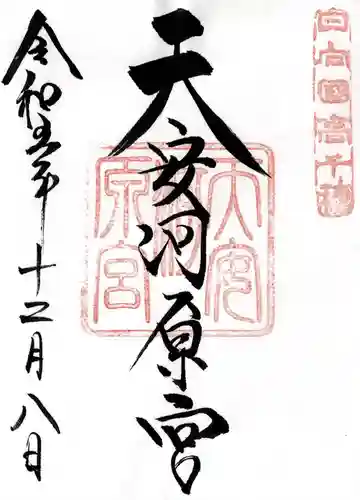 日向国高千穂
天安河原宮
天安河原宮
令和五年十二月八日